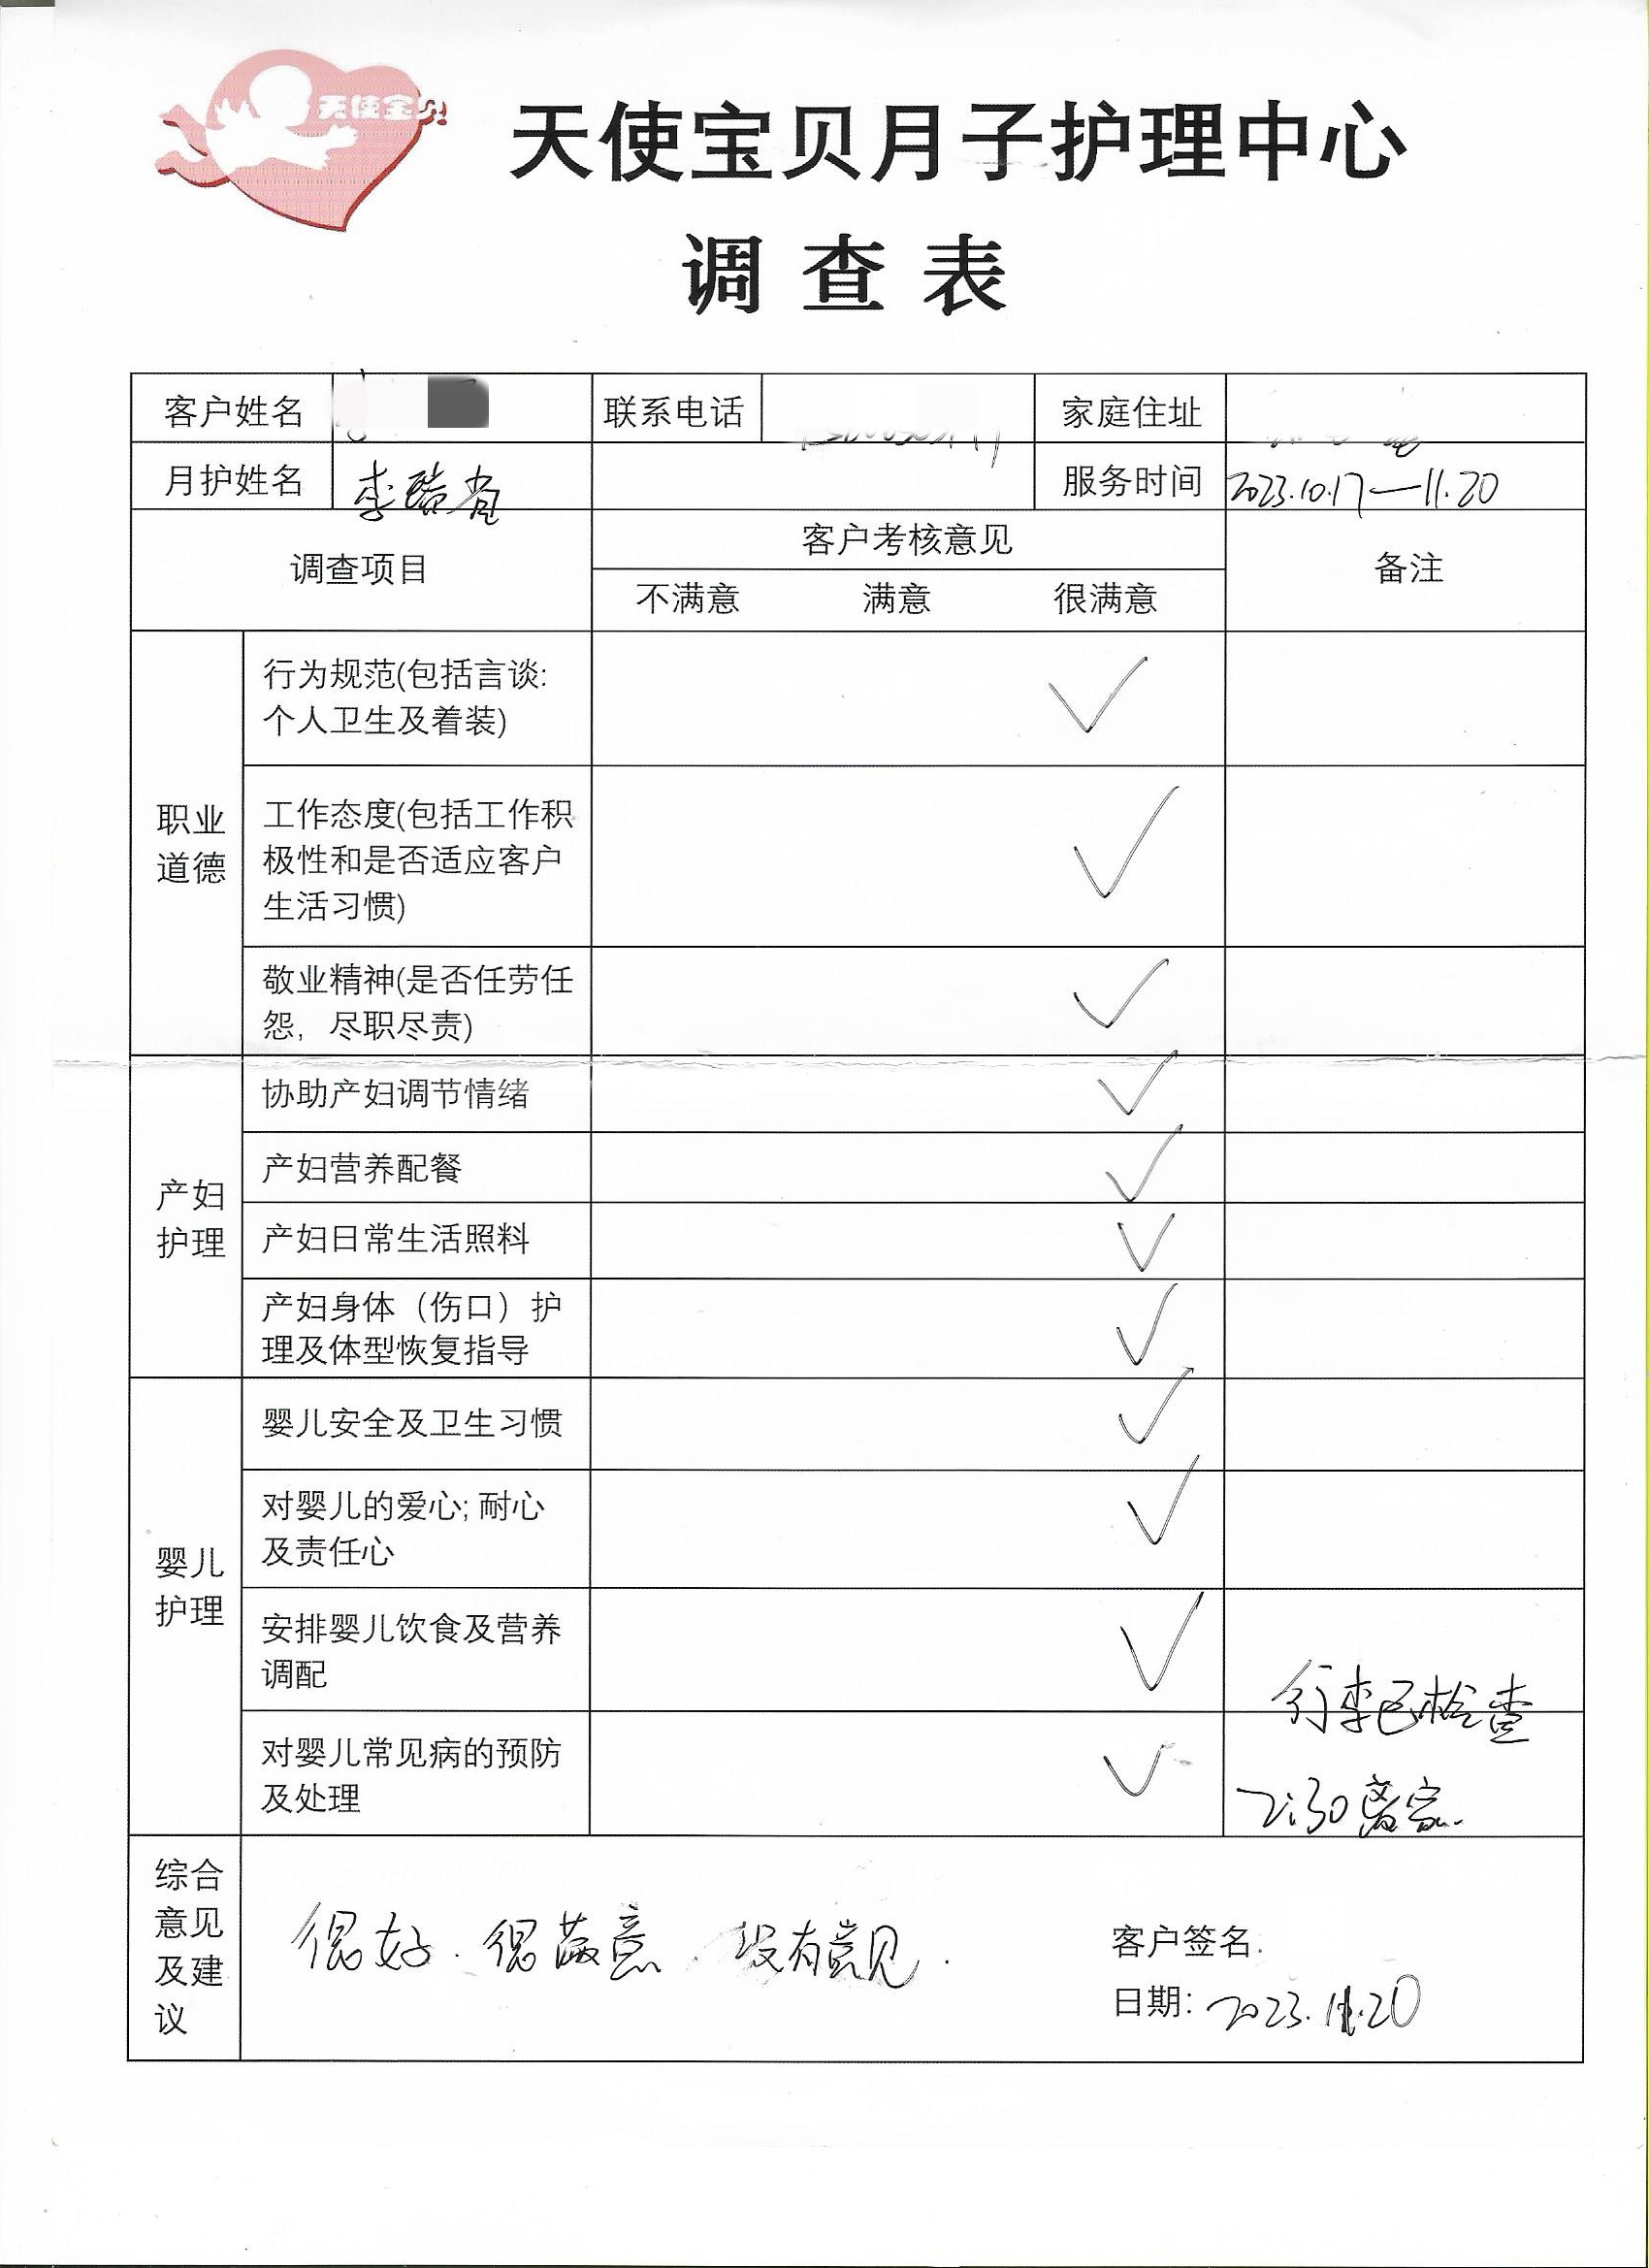 天使宝贝
天使宝贝月子护理中心
调查表
客户姓名 联系电话 家庭住址
月护姓名 李 服务时间 2023.10.17—11.20
调查项目 客户考核意见 备注
不满意 满意 很满意
职业
道德
行为规范(包括言谈:
个人卫生及着装)
工作态度(包括工作积
极性和是否适应客户
生活习惯)
敬业精神(是否任劳任
怨，尽职尽责)
产妇
护理
协助产妇调节情绪
产妇营养配餐
产妇日常生活照料
产妇身体（伤口）护
理及体型恢复指导
婴儿
护理
婴儿安全及卫生习惯
对婴儿的爱心; 耐心
及责任心
安排婴儿饮食及营养
调配
对婴儿常见病的预防
及处理
行李已检查
2:30离家.
综合
意见
及建
议
很好.很满意.没有意见.
客户签名.
日期: 2023.11.20